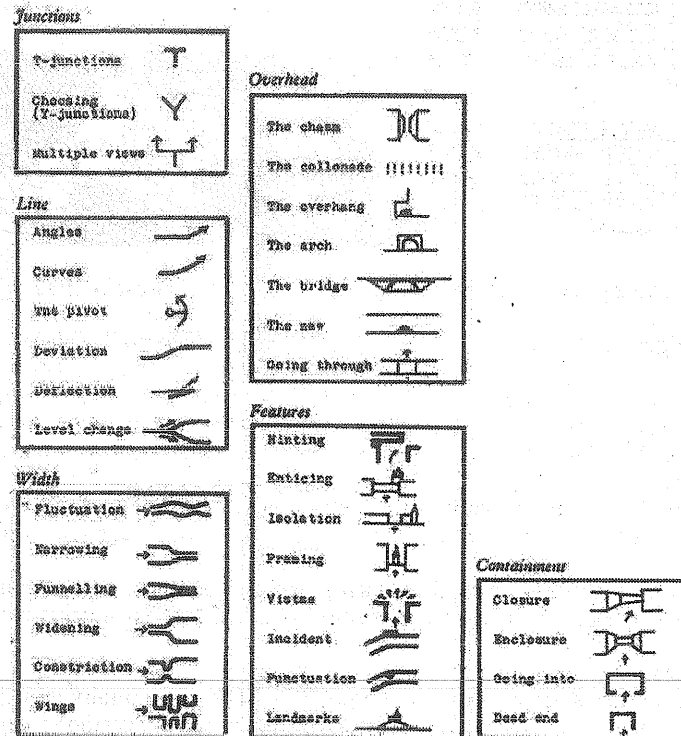 Junctions
T-junctions
Choosing
(Y-junctions)
Multiple views
Line
Angles
Curves
The pivot
Deviation
Deflection
Level change
Width
Fluctuation
Narrowing
Funnelling
Widening
Constriction
Wings
Overhead
The chasm
The collonade
The overhang
The arch
The bridge
The
Going through
Features
Hinting
Enticing
Isolation
Framing
Vistas
Incident
Punctuation
Landmarks
Containment
Closure
Enclosure
Going into
Dead end